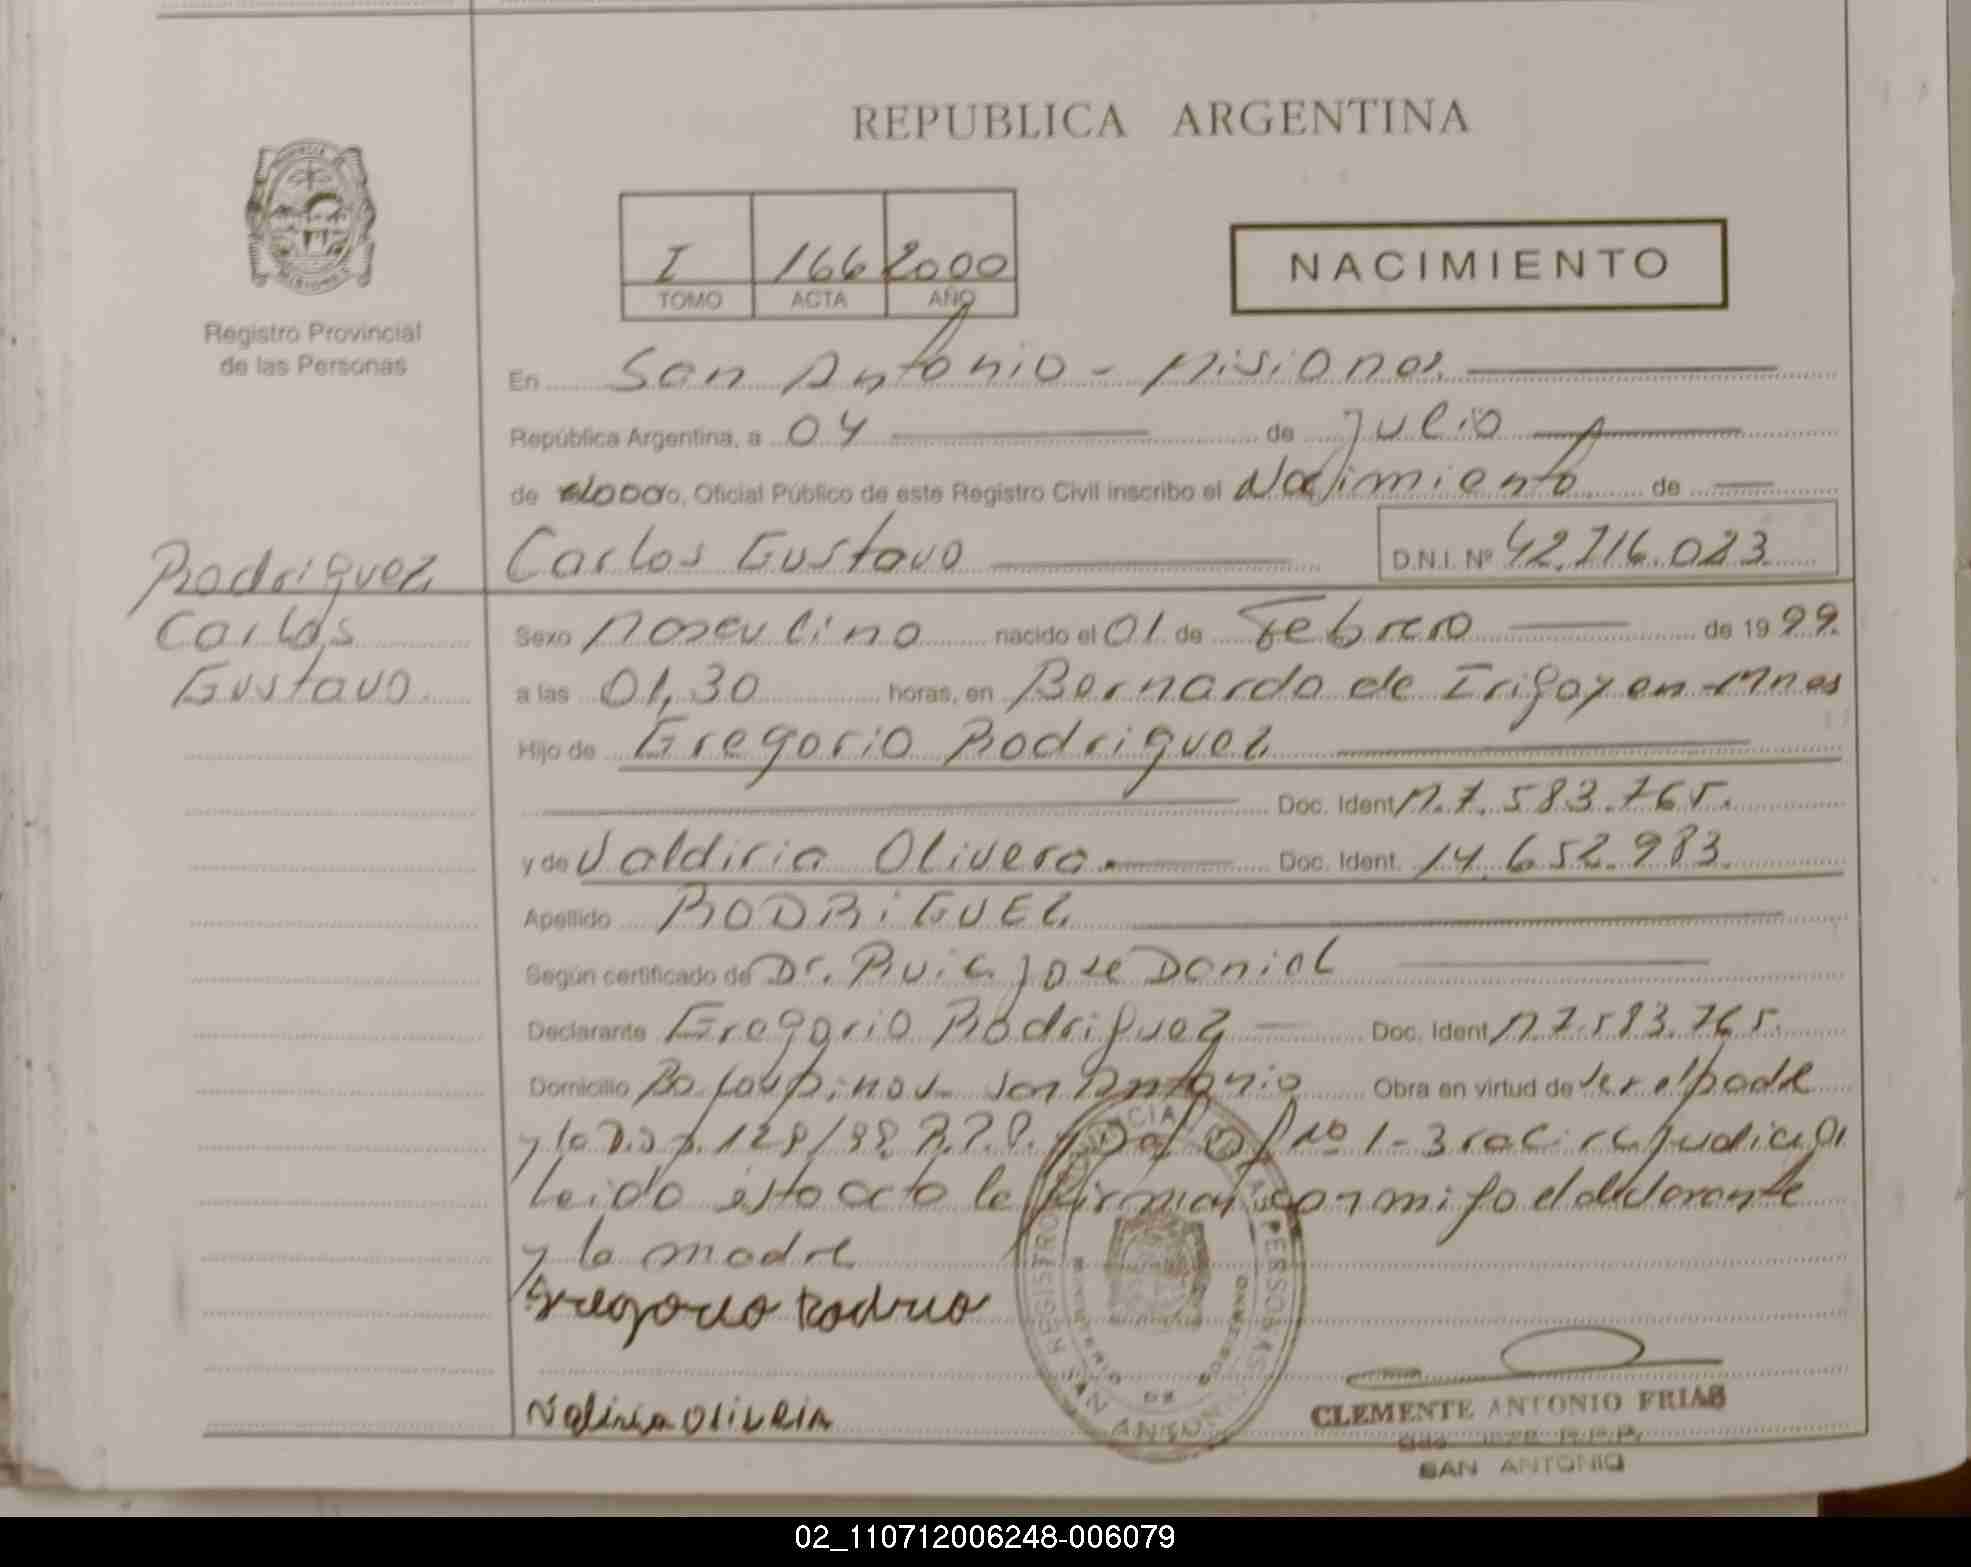 REPUBLICA ARGENTINA
I 166 2000
TOMO ACTA AÑO
NACIMIENTO
Registro Provincial
de las Personas
En San Antonio - Misiones
República Argentina, a 04 de Julio
de 2000, Oficial Público de este Registro Civil inscribo el Nacimiento de
Carlos Gustavo D.N.I. Nº 42.716.023
Rodriguez
Carlos
Gustavo.
Sexo Masculino nacido el 01 de Febrero de 1999.
a las 01,30 horas, en Bernardo de Irigoyen - Mnes
Hijo de Gregorio Rodriguez
Doc. Ident M.7.583.765.
y de Valdiria Olivera. Doc. Ident. 14.652.983.
Apellido RODRIGUEZ
Según certificado de Dr. Ruiz Jose Daniel
Declarante Gregorio Rodriguez Doc. Ident M7.583.765.
Domicilio San Antonio Obra en virtud de ser el padre
y la Disp. 128/98 R.P.P. Nº 1-3
Leido esta acta la firman conmigo el declarante
y la madre
Gregorio
Oliveira
REGISTRO PROVINCIAL DE LAS PERSONAS
MINISTERIO DE GOBIERNO
SAN ANTONIO
CLEMENTE ANTONIO FRIAS
R.P.P.
SAN ANTONIO
02_110712006248-006079